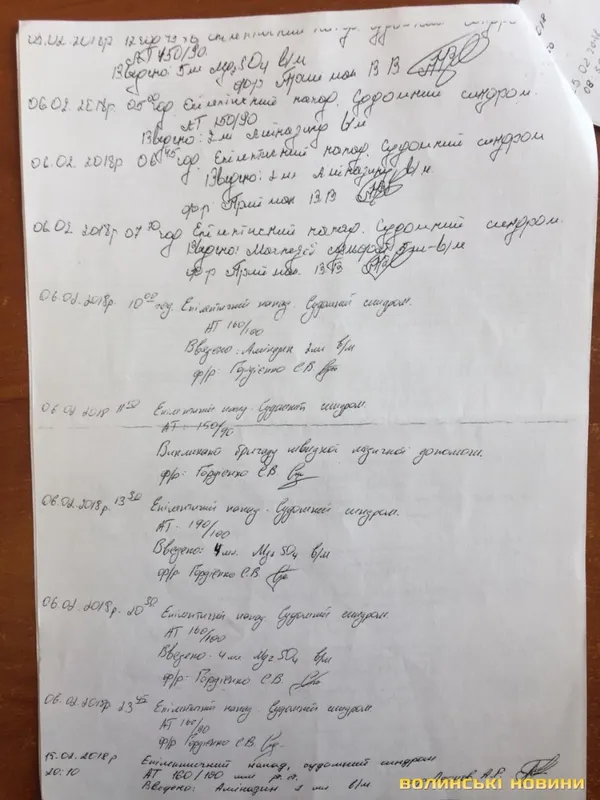 05.02.2018р 12 год Епілептичний напад. Судомний синдром
АТ 150/90.
Введено: 5 мл MgSO4 в/м
ф/р Прий мак В В
06.02.2018р. 05 00 год. Епілептичний напад. Судомний синдром.
АТ 150/90
Введено: 2 мл Аміназину в/м
06.02.2018р 06 45 год. Епілептичний напад. Судомний синдром
Введено: 2 мл Аміназину в/м.
ф/р Прий мак В В
06.02.2018р 07 год Епілептичний напад. Судомний синдром.
Введено: Магнезії 5 мл - в/м
ф/р Прий мак. В В
06.02.2018р. 10 00 год. Епілептичний напад. Судомний синдром.
АТ 160/100
Введено: Аміназин 2 мл в/м
ф/р: Гордієнко С.В
06.02.2018 11 50 Епілептичний напад. Судомний синдром.
АТ - 150/90
Викликано бригаду швидкої медичної допомоги.
ф/р: Гордієнко С.В.
06.02.2018р. 13 30 Епілептичний напад. Судомний синдром.
АТ - 190/100
Введено: 4 мл. MgSO4 в/м
ф/р: Гордієнко С.В
06.02.2018р. 20 30 Епілептичний напад. Судомний синдром.
АТ 160/100
Введено: 4 мл MgSO4 в/м
ф/р: Гордієнко С.В
06.02.2018р. 23 45 Епілептичний напад. Судомний синдром
АТ 160/90
ф/р Гордієнко С.В.
15.02.2018р Епілептичний напад, судомний синдром
20:10 АТ 160/100 мм рт. ст. А.Р.
Введено: Аміназин 2 мл в/м
ВОЛИНСЬКІ НОВИНИ